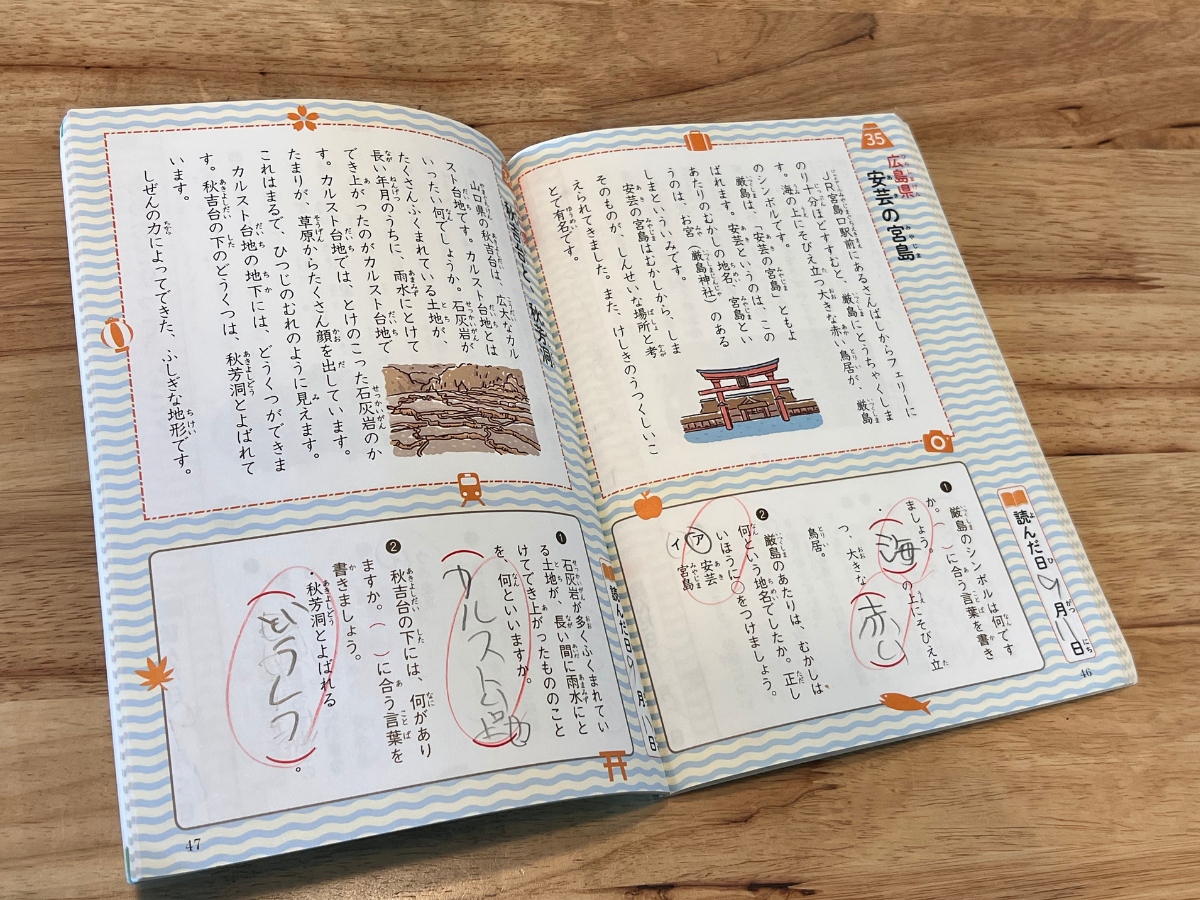 35
広島県
安芸の宮島
JR宮島口駅前にあるさんばしからフェリーに
のり十分ほどすすむと、厳島にとうちゃくしま
す。海の上にそびえ立つ大きな赤い鳥居が、厳島
のシンボルです。
厳島は、「安芸の宮島」ともよ
ばれます。安芸というのは、この
あたりのむかしの地名、宮島とい
うのは、お宮(厳島神社)のある
しまといういみです。
安芸の宮島はむかしから、しま
そのものが、しんせいな場所と考
えられてきました。また、けしきのうつくしいこ
とで有名です。
読んだ日 9月11日
❶ 厳島のシンボルは何です
か。( )に合う言葉を書き
ましょう。
・(海)の上にそびえ立
つ、大きな(赤い)
鳥居。
❷ 厳島のあたりは、むかしは
何という地名でしたか。正し
いほうに○をつけましょう。
ア 安芸
イ 宮島
46
秋芳洞
山口県の秋吉台は、広大なカル
スト台地です。カルスト台地とは
いったい何でしょうか。石灰岩が
たくさんふくまれている土地が、
長い年月のうちに、雨水にとけて
でき上がったのがカルスト台地で
す。カルスト台地では、とけのこった石灰岩のか
たまりが、草原からたくさん顔を出しています。
これはまるで、ひつじのむれのように見えます。
カルスト台地の地下には、どうくつができま
す。秋吉台の下のどうくつは、秋芳洞とよばれて
います。
しぜんの力によってできた、ふしぎな地形です。
読んだ日 9月11日
❶ 石灰岩が多くふくまれてい
る土地が、長い間に雨水にと
けてでき上がったもののこと
を、何といいますか。
(カルスト台地)
❷ 秋吉台の下には、何があり
ますか。( )に合う言葉を
書きましょう。
・秋芳洞とよばれる
(どうくつ)。
47